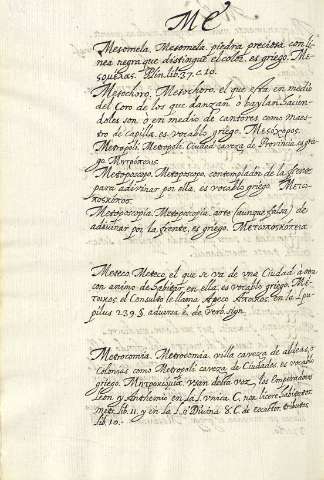 Me
Mesomela. Mesomela, piedra preciosa con li-
nea negra que distingue el color. es griego. Me-
Plin. lib. 37. c. 10.
Mesochoro. Mesochoro. el que esta en medio
del Coro de los que danzan ò baylan haciun-
doles son ò en medio de cantores, como maes-
tro de capilla. es vocablo griego. Μεσοχορος.
Metropoli. Metropoli. Ciudad caveza de Provincia, es grie-
go
Metoposcopo. Metoposcopo, contemplador de la frente
para adivinar por ella, es vocablo griego. Μετω-
ποσκοπος
Metoposcopia. Metoposcopia, arte (aunque falsa) de
adivinar por la frente, es griego.
Meteco. Meteco, el que se va de una Ciudad à otra
con animo de habitar en ella, es vocablo griego. Me-
el Consulto le llama
pilus 239. § de verb. sign.
Metrocomia. Metrocomia, villa caveza de aldeas, o
Colonias como Metropoli caveza de Ciudades. es vocablo
griego. usan desta voz, los Emperadores
Leon y Anthemio en la l. unica C. non licere habitator.
metr. lib. 11. y en la l. Divina 8. C. de exactor. tributor.
lib. 10.